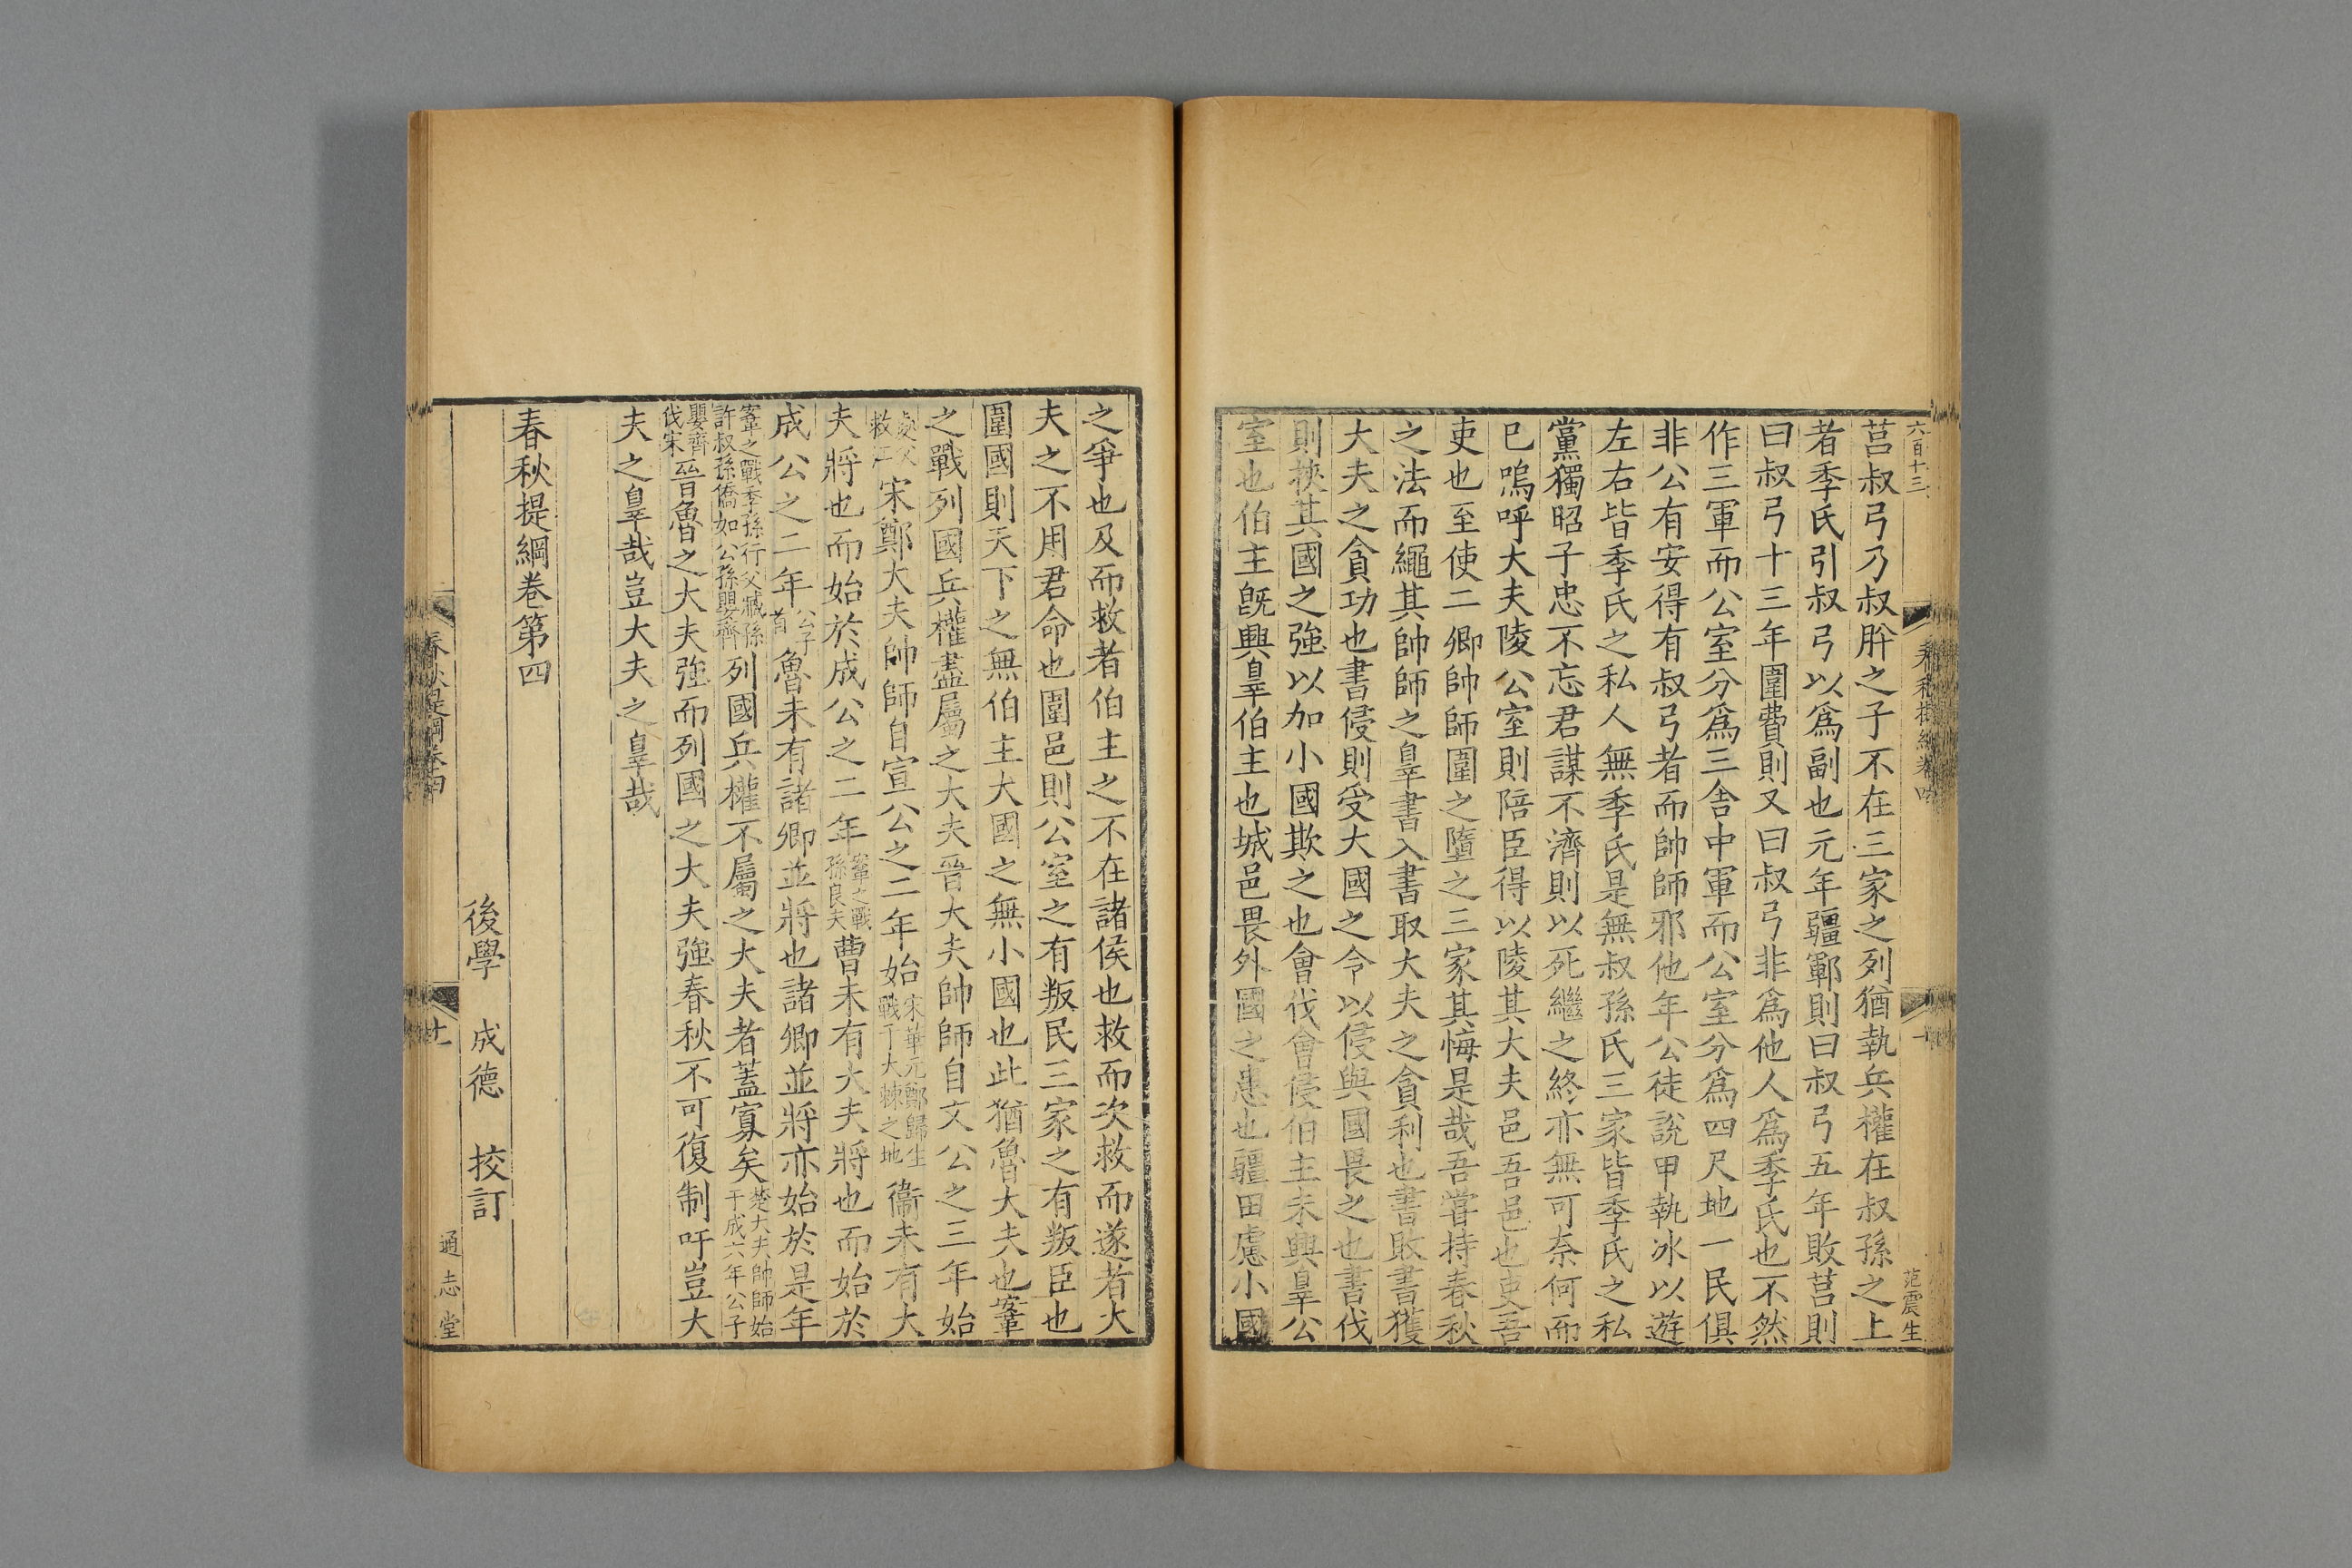 六百十三
莒叔弓乃叔肸之子不在三家之列猶執兵權在叔孫之上
者季氏引叔弓以爲副也元年疆鄆則曰叔弓五年敗莒則
曰叔弓十三年圍費則又曰叔弓非爲他人爲季氏也不然
作三軍而公室分爲三舎中軍而公室分爲四尺地一民俱
非公有安得有叔弓者而帥師邪他年公徒説甲執冰以遊
左右皆季氏之私人無季氏是無叔孫氏三家皆季氏之私
黨獨昭子忠不忘君謀不濟則以死繼之終亦無可奈何而
已嗚呼大夫陵公室則陪臣得以陵其大夫邑吾邑也吏吾
吏也至使二卿帥師圍之墮之三家其悔是哉吾嘗持春秋
之法而繩其帥師之辠書入書取大夫之貪利也書敗書獲
大夫之貪功也書侵則受大國之令以侵與國畏之也書伐
則挾其國之強以加小國欺之也會伐會侵伯主未興辠公
室也伯主旣興辠伯主也城邑畏外國之患也疆田慮小國
范震生
之爭也及而救者伯主之不在諸侯也救而次救而遂者大
夫之不用君命也圍邑則公室之有叛民三家之有叛臣也
圍國則天下之無伯主大國之無小國也此猶魯大夫也鞌
之戰列國兵權盡屬之大夫晉大夫帥師自文公之三年始
處父
救江
宋鄭大夫帥師自宣公之二年始
宋華元鄭歸生
戰于大棘之地
衞未有大
夫將也而始於成公之二年
鞌之戰
孫良夫
曹未有大夫將也而始於
成公之二年
公子
首
魯未有諸卿並將也諸卿並將亦始於是年
鞌之戰季孫行父臧孫
許叔孫僑如公孫嬰齊
列國兵權不屬之大夫者蓋寡矣
楚大夫帥師始
于成六年公子
嬰齊
伐宋
晉魯之大夫強而列國之大夫強春秋不可復制吁豈大
夫之辠哉豈大夫之辠哉
春秋提綱卷第四
後學　成德　挍訂
春秋提綱卷四
通志堂